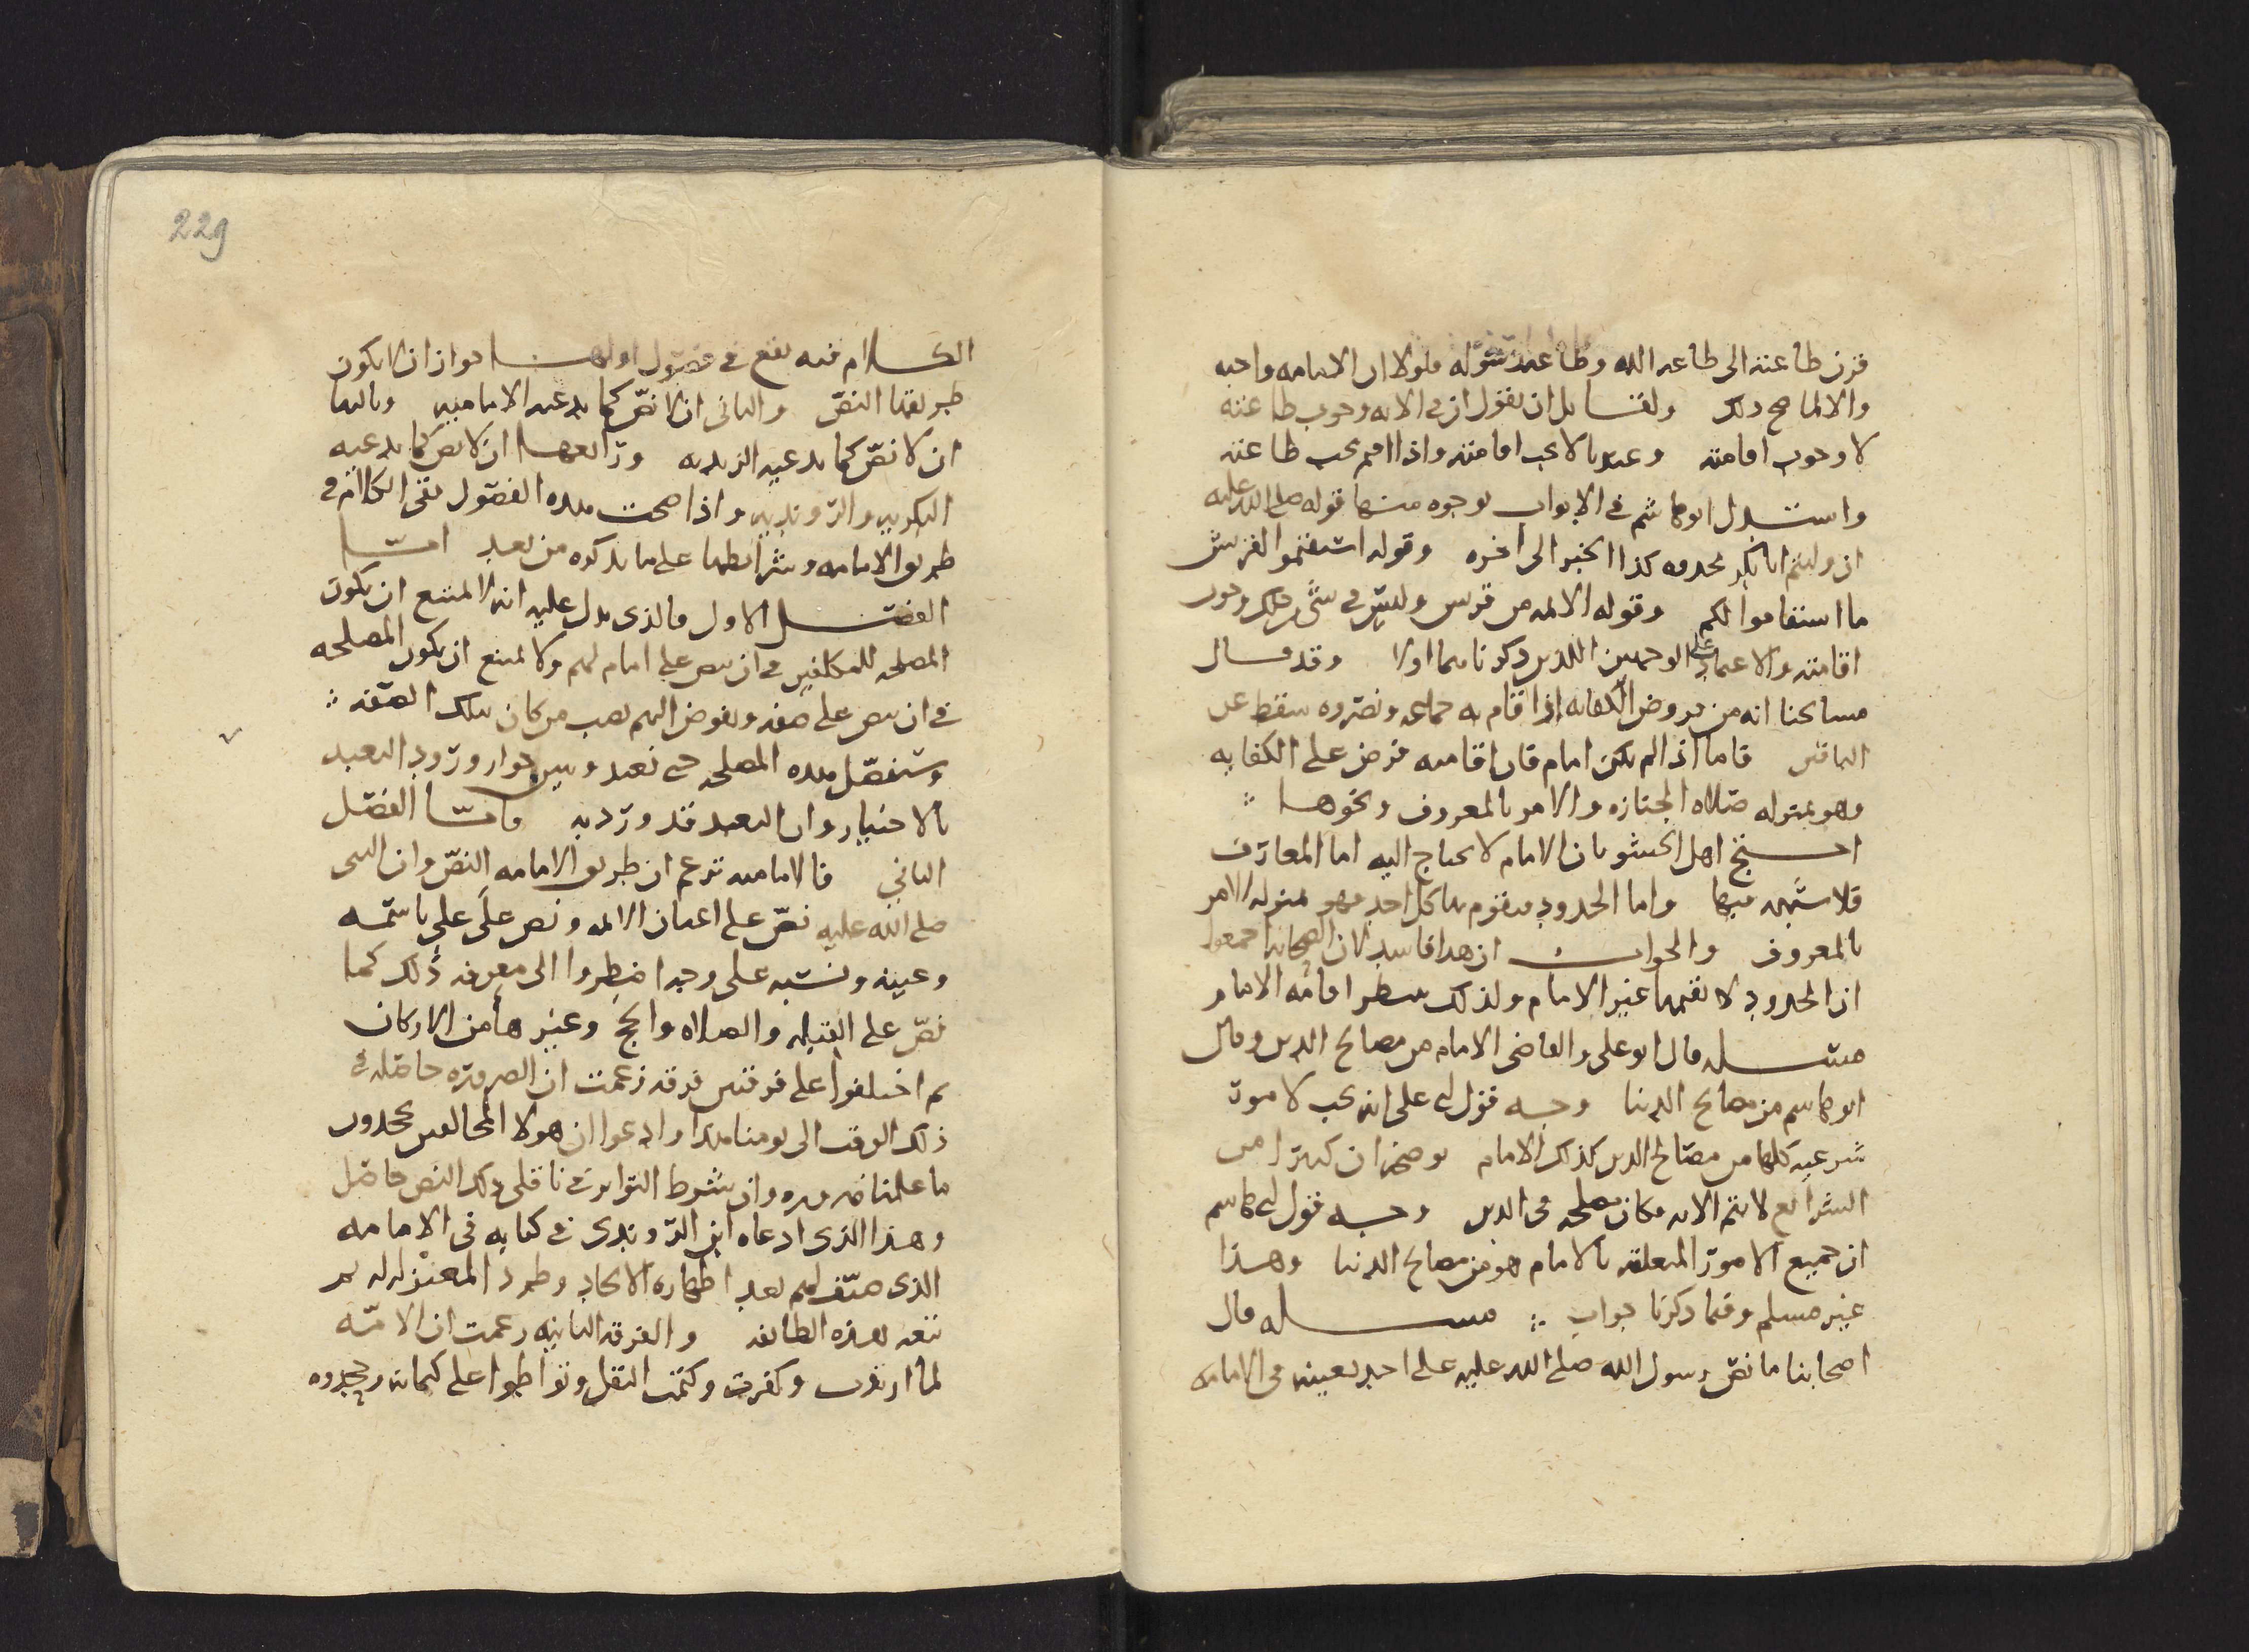 قرن طاعته الى طاعه الله وطاعه رسوله فلولا ان الامامه واجبه
والا لما صح ذلك ولقايل ان يقول ان في الايه وجوب طاعته
لا وجوب اقامته وعندنا لا يجب اقامته واذا اقيم يجب طاعته
واستدل ابو هاشم في الابواب بوجوه منها قوله صلى الله عليه
ان وليتم ابا بكر تجدوه كذا الخبر الى اخره وقوله استقيموا لقريش
ما استقاموا لكم وقوله الايمه من قريش وليس في شي من ذلك وجوب
اقامته والاعتماد على الوجهين اللذين ذكرناهما اولا وقد قال
مشايخنا انه من فروض الكفايه اذا اقام به جماعه ونصروه سقط عن
الباقين فاما اذا لم يكن امام فان اقامته فرض على الكفايه
وهو بمنزله صلاه الجنازه والامر بالمعروف ونحوها
احتج اهل الحشو بان الامام لا يحتاج اليه اما المعارف
فلا شبهه فيها واما الحدود فيقوم بها كل احد فهو بمنزله الامر
بالمعروف والجواب ان هذا فاسد لان الصحابه اجمعوا
ان الحدود لا يقيمها غير الامام ولذلك اقامه الامام
مسله قال ابو علي والقاضي الامام من مصالح الدين وقال
ابو هاشم من مصالح الدنيا وجه قول ابي علي انه يجب لامور
شرعيه كلها من مصالح الدين كذلك الامام يوضحه ان كثيرا من
الشرائع لا يتم الا به فكان مصلحه في الدين وجه قول ابي هاشم
ان جميع الامور المتعلقه بالامام هو من مصالح الدنيا وهذا
غير مسلم وفيما ذكرنا جواب مسله قال
اصحابنا ما نص رسول الله صلى الله عليه على احد بعينه في الامامه
229
الكلام فيه يقع في فصول اولها جواز ان لا يكون
طريقها النص والثاني ان لا نص كما يدعيه الاماميه وثالثها
ان لا نص كما يدعيه الزيديه ورابعها ان لا نص كما يدعيه
البكريه والرونديه واذا صحت هذه الفصول بقي الكلام في
طريق الامامه وشرائطها على ما نذكره من بعد اما
الفصل الاول فالذي يدل عليه انه لا يمتنع ان يكون
المصلحه للمكلفين في ان ينص على امام لهم ولا يمتنع ان يكون المصلحه
في ان ينص على صفه ويفوض اليهم نصب من كان بتلك الصفه
وسنفصل هذه المصلحه من بعد ونبين جواز ورود التعبد
بالاختيار وان التعبد قد ورد به فاما الفصل
الثاني فالاماميه تزعم ان طريق الامامه النص وان النبي
صلى الله عليه نص على اعيان الايمه ونص على علي باسمه
وعينه ونسبه على وجه اضطروا الى معرفه ذلك كما
نص على القبله والصلاه والحج وغيرها من الاركان
ثم اختلفوا على فرقتين فرقه زعمت ان الضروره حاصله في
ذلك الوقت الى يومنا هذا وادعوا ان هولا المخالفين يجحدون
ما علمنا ضروره وان شرط التواتر في ناقلي ذلك النص حاصل
وهذا الذي ادعاه ابن الروندي في كتابه في الامامه
الذي صنف لهم بعد اظهاره الالحاد وطرد المعتزله له ثم
تبعه هذه الطائفه والفرقه الثانيه زعمت ان الامه
لما ارتدت وكفرت وكتمت النقل وتواطوا على كتمانه وجحدوه